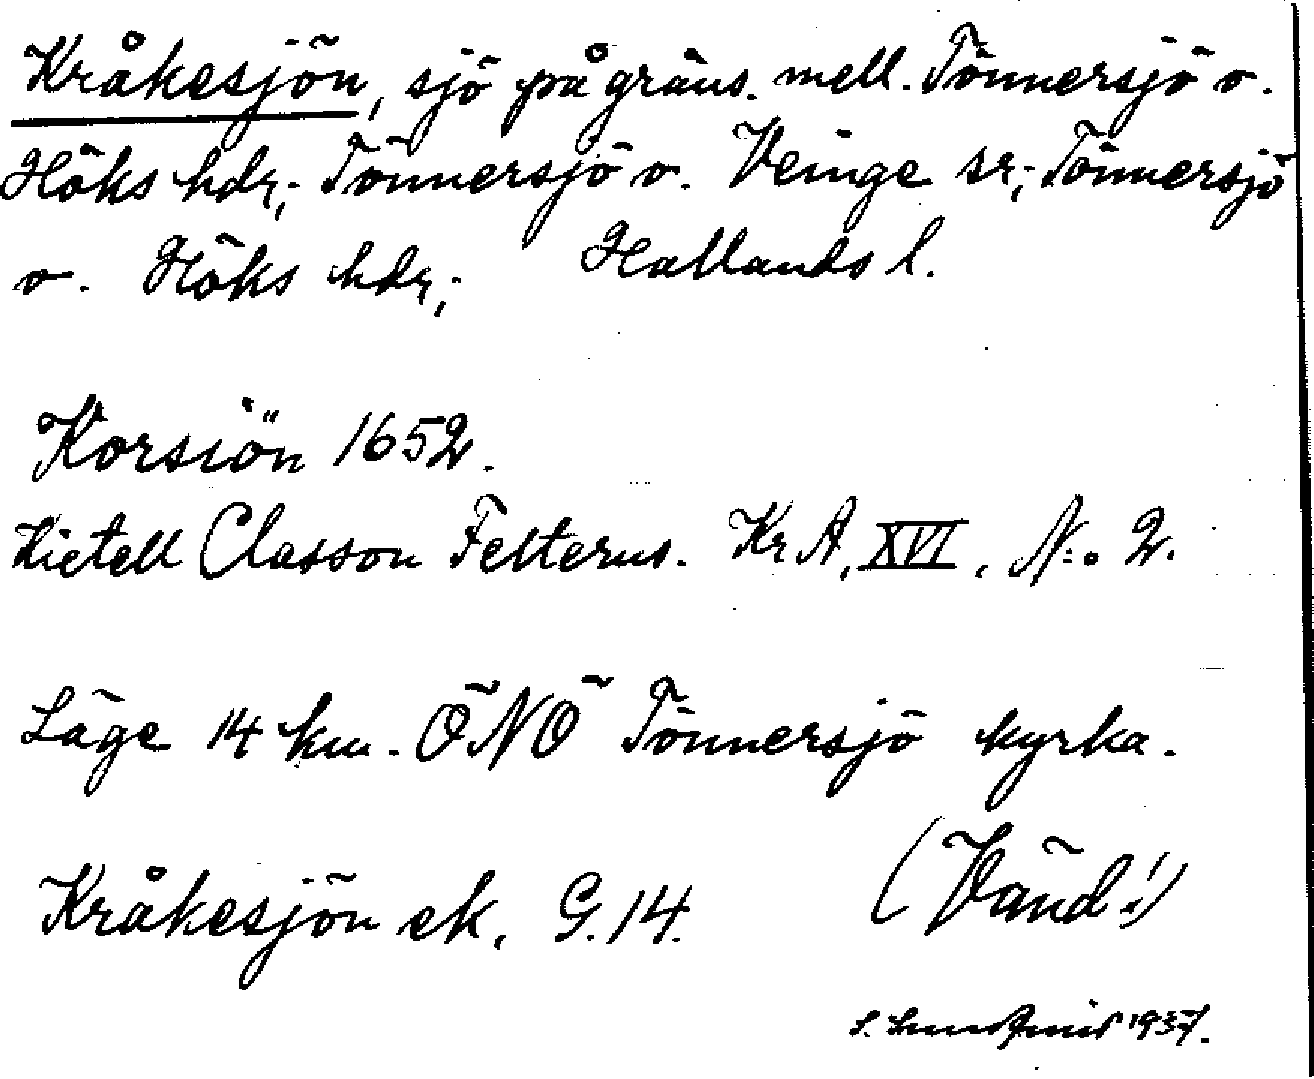 Kråkesjön, sjö på gräns. mell. Tönnersjö o.
Höks hdr,; Tönnersjö o. Veinge sr,; Tönnersjö
o. Höks hdr,; Hallands l.
Korsiön 1652.
Kietell Classon Felterus. KrA, XVI, N:o 2.
Läge 14 km. ÖNÖ Tönnersjö kyrka.
Kråkesjön ek. G. 14. (Vänd!)
1937.